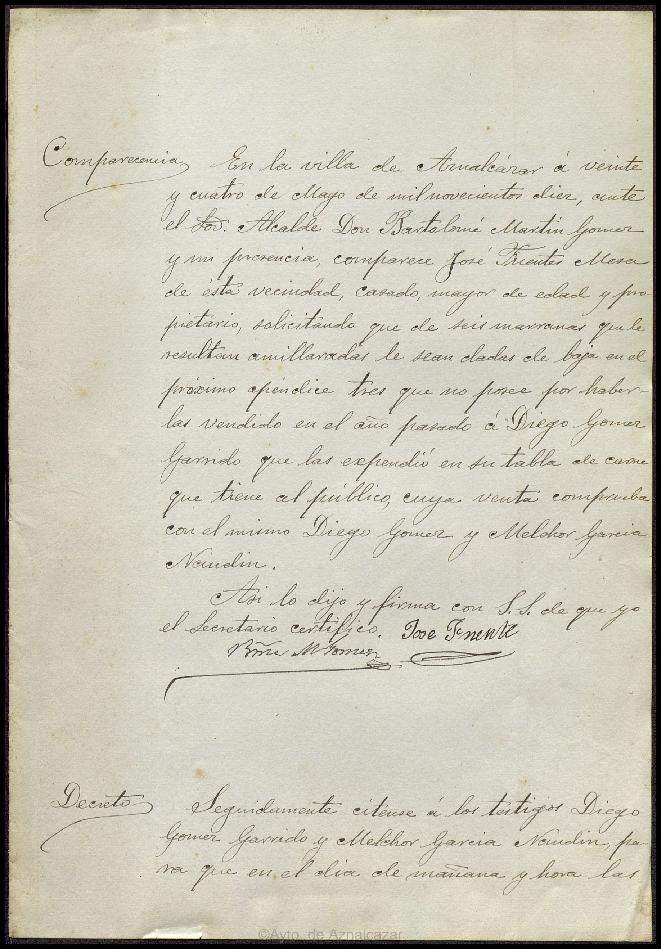 Comparecencia En la villa de Aznalcázar á veinte
y cuatro de Mayo de mil novecientos diez, ante
el Sor. Alcalde Don Bartolomé Martin Gomez
y mi presencia, comparece José Fuentes Mesa
de ésta vecindad, casado, mayor de edad y pro-
pietario, solicitando que de seis marranas que le
resultan amillaradas le sean dadas de baja en el
proximo apéndice tres que no posee por haber-
las vendido en el año pasado á Diego Gomez
Garrido que las expendió en su tabla de carne
que tiene al público, cuya venta comprueba
con el mismo Diego Gomez y Melchor Garcia
Naudin.
Asi lo dijo y firma con S.S. de que yo
el Secretario certifico. Jose Fuente
Bme M Gomez
Decreto Seguidamente citense á los testigos Diego
Gomez Garrido y Melchor Garcia Naudin, pa-
ra que en el dia de mañana y hora las
©Ayto. de Aznalcazar